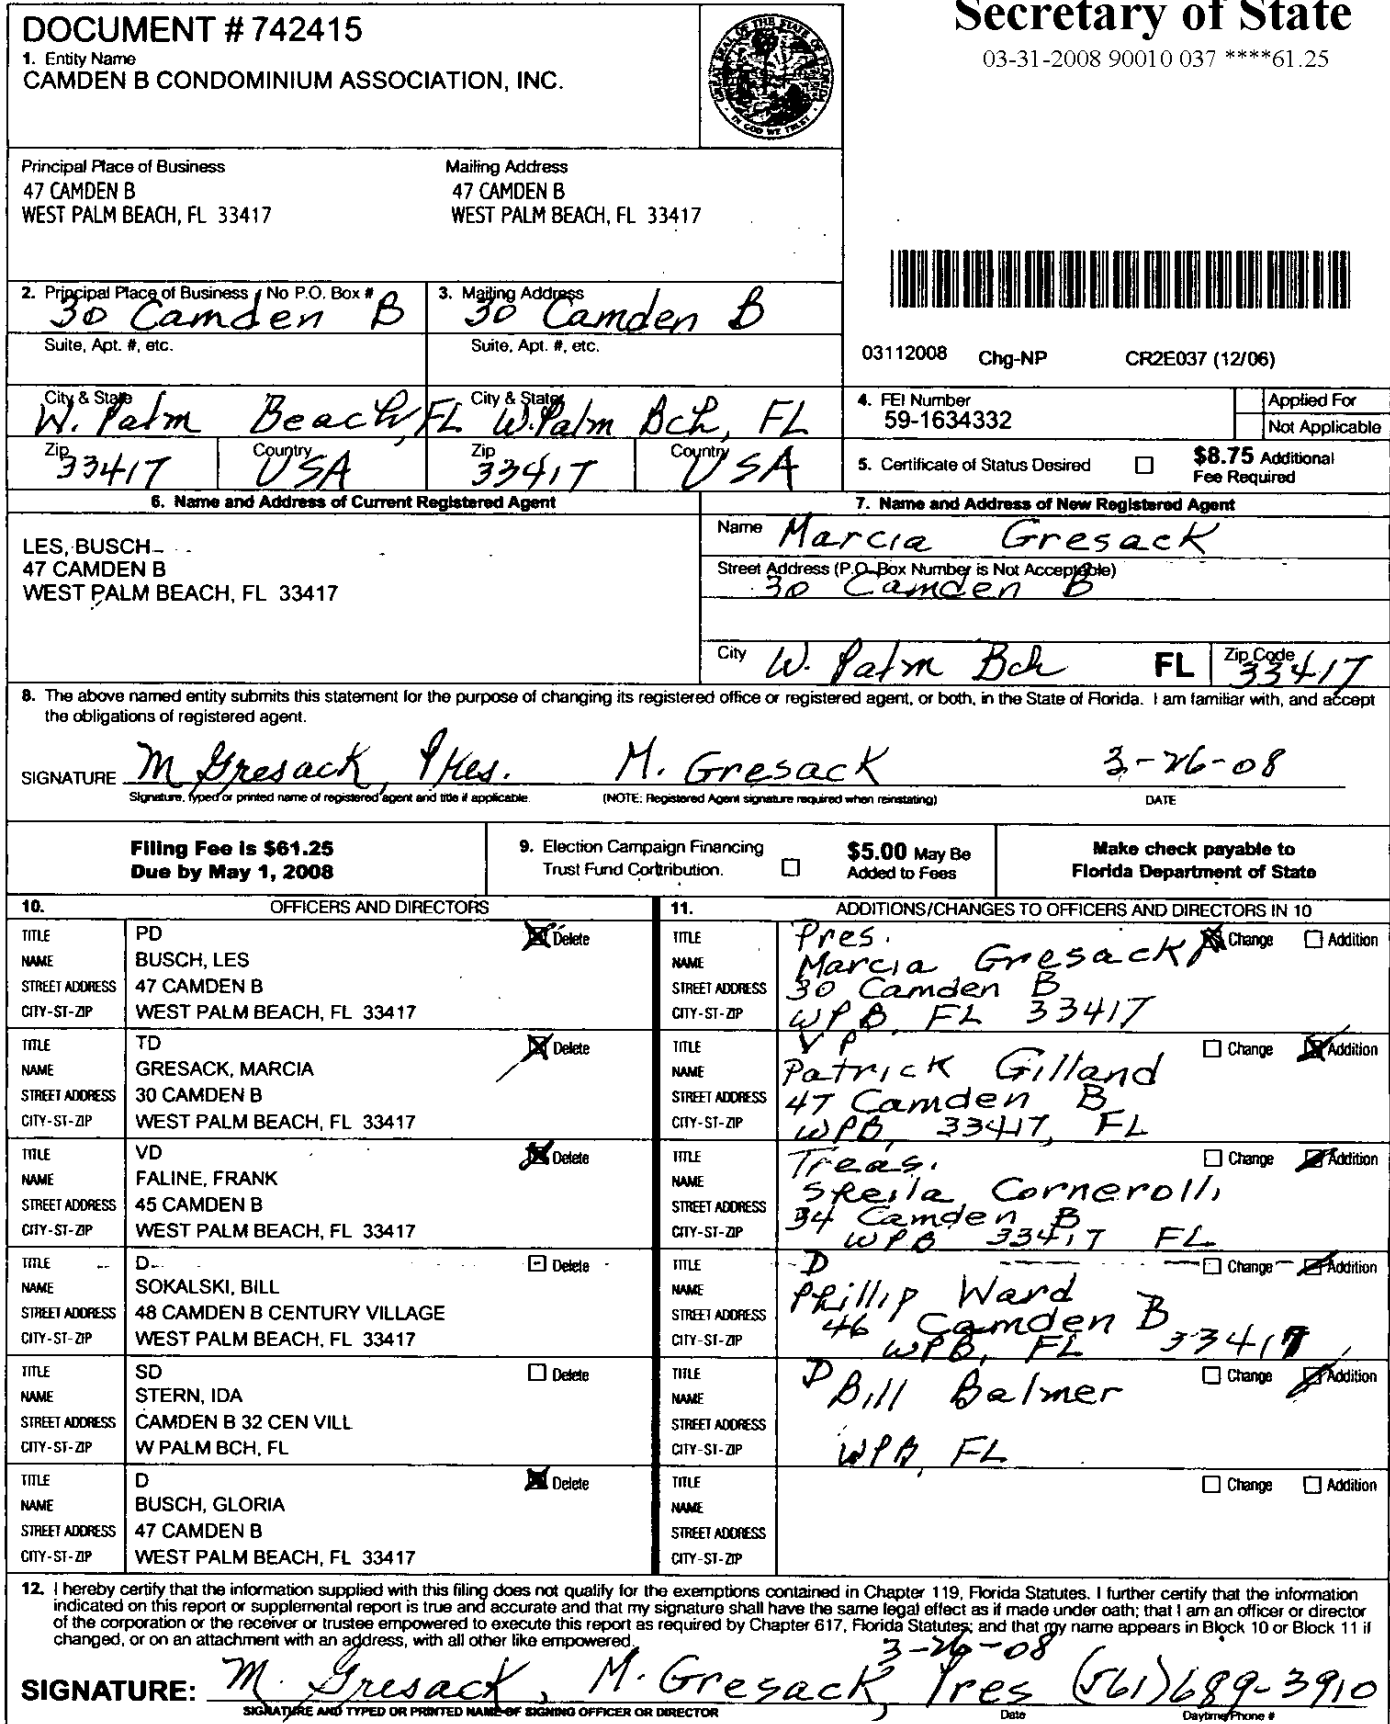 Secretary of State
03-31-2008 90010 037 ****61.25
DOCUMENT # 742415
1. Entity Name
CAMDEN B CONDOMINIUM ASSOCIATION, INC.
GREAT SEAL OF THE STATE OF FLORIDA
IN GOD WE TRUST
Principal Place of Business
47 CAMDEN B
WEST PALM BEACH, FL 33417
Mailing Address
47 CAMDEN B
WEST PALM BEACH, FL 33417
2. Principal Place of Business / No P.O. Box #
30 Camden B
3. Mailing Address
30 Camden B
Suite, Apt. #, etc.
Suite, Apt. #, etc.
03112008 Chg-NP CR2E037 (12/06)
City & State
W. Palm Beach, FL
City & State
W. Palm Bch, FL
Zip
33417
Country
USA
Zip
33417
Country
USA
4. FEI Number
59-1634332
Applied For
Not Applicable
5. Certificate of Status Desired
$8.75 Additional
Fee Required
6. Name and Address of Current Registered Agent
LES, BUSCH
47 CAMDEN B
WEST PALM BEACH, FL 33417
7. Name and Address of New Registered Agent
Name Marcia Gresack
Street Address (P.O. Box Number is Not Acceptable)
30 Camden B
City W. Palm Bch FL Zip Code 33417
8. The above named entity submits this statement for the purpose of changing its registered office or registered agent, or both, in the State of Florida. I am familiar with, and accept
the obligations of registered agent.
SIGNATURE M Gresack, Pres. M. Gresack 3-26-08
Signature, typed or printed name of registered agent and title if applicable. (NOTE: Registered Agent signature required when reinstating) DATE
Filing Fee is $61.25
Due by May 1, 2008
9. Election Campaign Financing
Trust Fund Contribution.
$5.00 May Be
Added to Fees
Make check payable to
Florida Department of State
10. OFFICERS AND DIRECTORS
TITLE PD Delete
NAME BUSCH, LES
STREET ADDRESS 47 CAMDEN B
CITY-ST-ZIP WEST PALM BEACH, FL 33417
TITLE TD Delete
NAME GRESACK, MARCIA
STREET ADDRESS 30 CAMDEN B
CITY-ST-ZIP WEST PALM BEACH, FL 33417
TITLE VD Delete
NAME FALINE, FRANK
STREET ADDRESS 45 CAMDEN B
CITY-ST-ZIP WEST PALM BEACH, FL 33417
TITLE D Delete
NAME SOKALSKI, BILL
STREET ADDRESS 48 CAMDEN B CENTURY VILLAGE
CITY-ST-ZIP WEST PALM BEACH, FL 33417
TITLE SD Delete
NAME STERN, IDA
STREET ADDRESS CAMDEN B 32 CEN VILL
CITY-ST-ZIP W PALM BCH, FL
TITLE D Delete
NAME BUSCH, GLORIA
STREET ADDRESS 47 CAMDEN B
CITY-ST-ZIP WEST PALM BEACH, FL 33417
11. ADDITIONS/CHANGES TO OFFICERS AND DIRECTORS IN 10
TITLE Pres. Change Addition
NAME Marcia Gresack
STREET ADDRESS 30 Camden B
CITY-ST-ZIP WPB, FL 33417
TITLE VP Change Addition
NAME Patrick Gilland
STREET ADDRESS 47 Camden B
CITY-ST-ZIP WPB, 33417, FL
TITLE Treas. Change Addition
NAME Sheila Cornerolli
STREET ADDRESS 34 Camden B
CITY-ST-ZIP WPB 33417 FL
TITLE D Change Addition
NAME Phillip Ward
STREET ADDRESS 46 Camden B
CITY-ST-ZIP WPB, FL 33417
TITLE D Change Addition
NAME Bill Balmer
STREET ADDRESS
CITY-ST-ZIP WPB, FL
TITLE Change Addition
NAME
STREET ADDRESS
CITY-ST-ZIP
12. I hereby certify that the information supplied with this filing does not qualify for the exemptions contained in Chapter 119, Florida Statutes. I further certify that the information
indicated on this report or supplemental report is true and accurate and that my signature shall have the same legal effect as if made under oath; that I am an officer or director
of the corporation or the receiver or trustee empowered to execute this report as required by Chapter 617, Florida Statutes; and that my name appears in Block 10 or Block 11 if
changed, or on an attachment with an address, with all other like empowered.
3-26-08
SIGNATURE: M. Gresack, M. Gresack, Pres (561)689-3910
SIGNATURE AND TYPED OR PRINTED NAME OF SIGNING OFFICER OR DIRECTOR Date Daytime Phone #